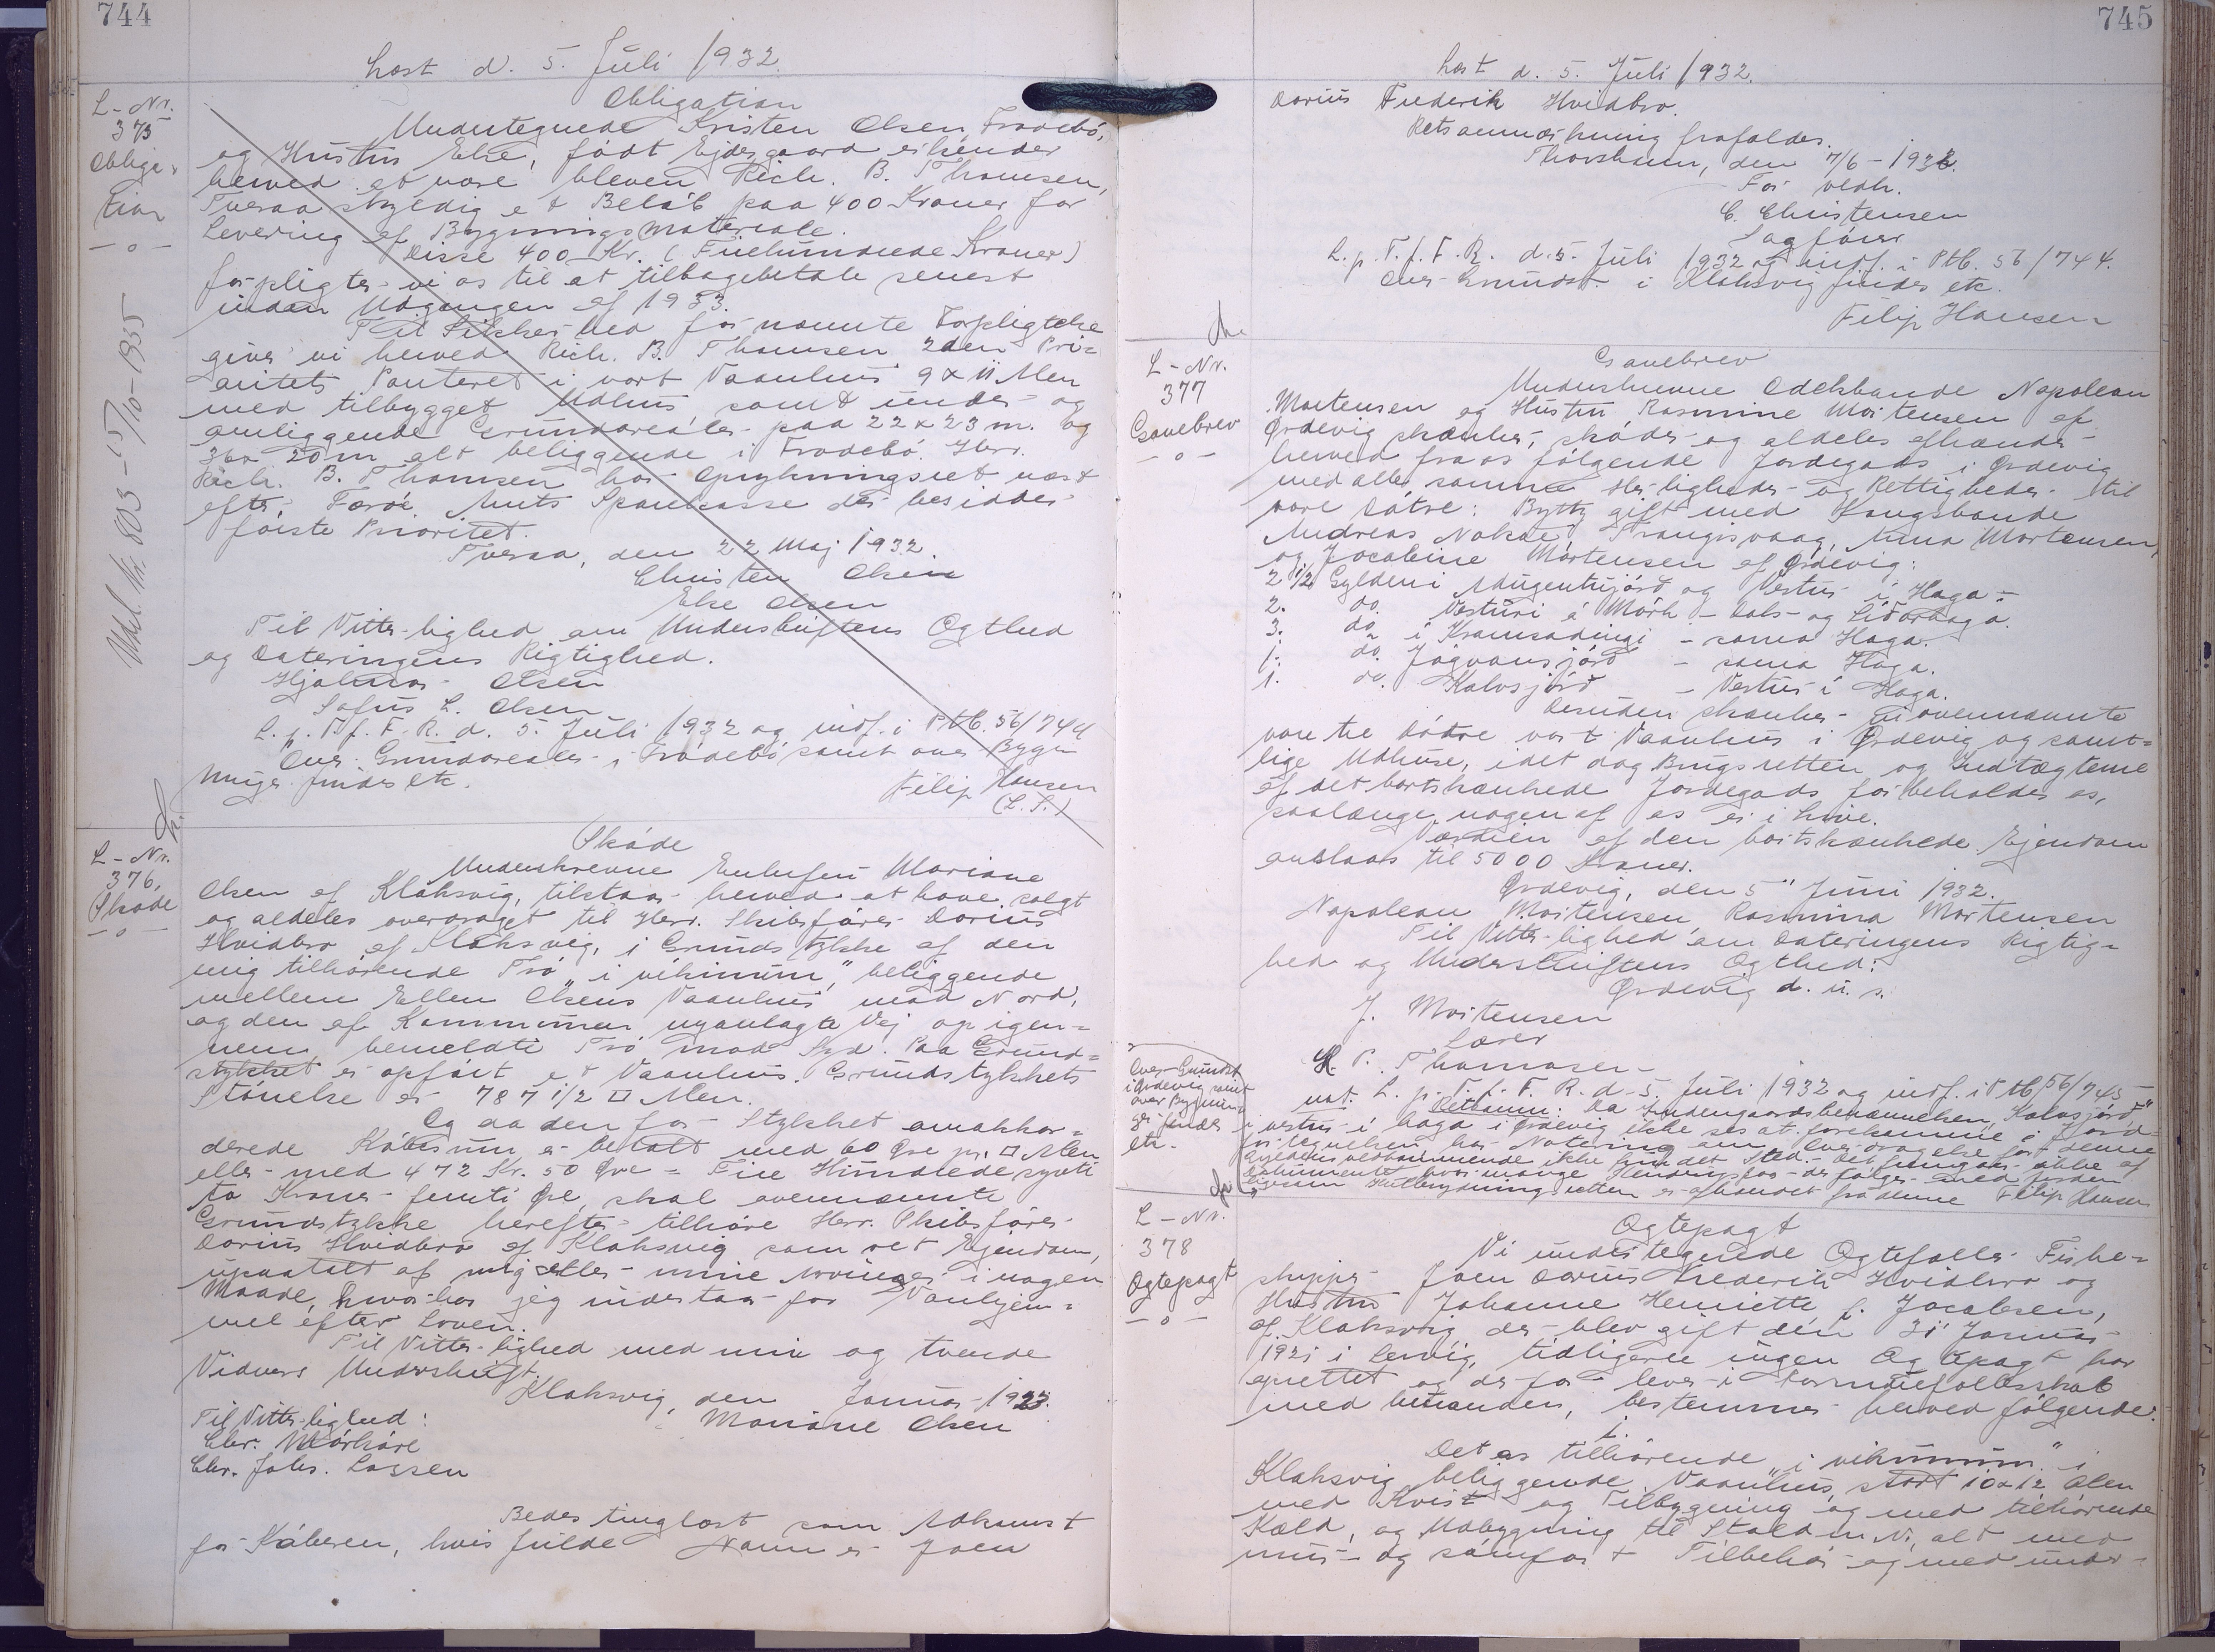 744
Læst d. 5. Juli 1932.
L-Nr.
375
Obliga-
tion
Udsl. Nr. 803 - 15/10-1935
Obligation
Undertegnede Kristen Olsen, Frodebø,
og Hustru Else, født Ejdesgaard erkender
herved at være bleven Rich. B. Thomsen,
Tveraa skyldig et Beløb paa 400 Kroner for
Levering af Bygningsmateriale.
Disse 400 Kr. (Firehundrede Kroner)
forpligter vi os til at tilbagebetale senest
inden Udgangen af 1933.
Til Sikkerhed for nævnte Forpligtelse
giver vi herved Rich. B. Thomsen 2den Pri-
oritets Panteret i vort Vaanhus 9 x 11 Alen
med tilbygget Udhus, samt under- og
omliggende Grundarealer paa 22 x 23 m. og
36 x 20 m alt beliggende i Frodebø. Herr.
Rich. B. Thomsen har Oprykningsret næst
efter Færø Amts Sparekasse der besidder
første Prioritet.
Tveraa, den 22 Maj 1932.
Christen Olsen
Else Olsen
Til Vitterlighed om Underskriftens Ægthed
og Dateringens Rigtighed.
Hjalmar Olsen
Sofus L. Olsen
L. p. T. f. F. R. d. 5. Juli 1932 og indf. i Ptb. 56/744
Over Grundarealer i Frodebø samt over Byg-
ninger findes etc.
Filip Hansen
(L. S.)
L-Nr.
376,
Skøde
Skøde
Underskrevne Enkefru Mariane
Olsen af Klaksvig, tilstaar herved at have solgt
og aldeles overdraget til Herr. Skibsfører Dorius
Hvidbro af Klaksvig, i Grundstykke af den
mig tilhørende Trø "i vikinum," beliggende
mellem Ellen Olsens Vaanhus mod Nord,
og den af Kommunen nyanlagte Vej op igen-
nem bemeldte Trø mod Syd. Paa Grund-
stykket er opført et Vaanhus. Grundstykkets
Størrelse er 787 1/2 □ Alen.
Og da den for Stykket omakkor-
derede Købesum er betalt med 60 Øre pr. □ Alen
eller med 472 Kr. 50 Øre = Fire Hundrede sytti
to Kroner femti Øre, skal ovennævnte
Grundstykke herefter tilhøre Herr. Skibsfører
Dorius Hvidbro af Klaksvig som ret Ejendom,
upaatalt af mig eller mine Arvinger i nogen
Maade, hvorhos jeg indestaar for Vanhjem-
mel efter Loven.
Til Vitterlighed med min og tvende
Vidners Underskrift.
Klaksvig, den Januar 1923.
Mariane Olsen
Til Vitterlighed:
Chr. Mørkøre
Chr. Johs. Lassen
Bedes tinglæst som Adkomst
for Køberen, hvis fulde Navn er Joen
745
Læst d. 5. Juli 1932.
Dorius Frederik Hvidbro.
Retsanmærkning frafaldes.
Thorshavn, den 7/6 - 1932.
For vedk.
C. Christensen
Sagfører
L. p. T. f. F. R. d. 5. Juli 1932 og indf. i Ptb. 56/744.
Over Grundst. i Klaksvig findes etc.
Filip Hansen
L-Nr.
377
Gavebrev
Gavebrev
Underskrevne Odelsbonde Napoleon
Mortensen og Hustru Rasmine Mortensen af
Ørdevig skænker, skøder og aldeles afhænder
herved fra os følgende Jordegods i Ørdevig
med alle samme Herligheder og Rettigheder til
vore Døtre: Bytty gift med Kongsbonde
Andreas Nolsøe Trangisvaag, Anna Mortensen,
og Jacobine Mortensen af Ørdevig:
2 1/2 Gylden i Mugentujørd og Vestur í Haga -
2. do. Vesturi á Mørk - Dals- og Líðarhaga.
3. do. í Kramsadingi - sama Haga.
1. do. Jógvansjørð - sama Haga.
1. do. Kalvsjørð - Vestur í Haga.
Desuden skænker vi ovennævnte
vore tre Døtre vort Vaanhus i Ørdevig og samt-
lige Udhuse, idet dog Brugsretten og Indtægterne
af det bortskænkede Jordegods forbeholdes os,
saalænge nogen af os er i Live.
Værdien af den bortskænkede Ejendom
anslaas til 5000 Kroner.
Ørdevig, den 5" Juni 1932.
Napoleon Mortensen Rasmina Mortensen
Til Vitterlighed om Dateringens Rigtig-
hed og Underskriftens Ægthed:
Ørdevig d. u. s.
J. Mortensen
Lærer
H. P. Thomasen
Over Grundst
i Ørdevig samt
over Bygnin-
ger findes
etc.
not. L. p. T. f. F. R. d. 5. Juli 1932 og indf. i Ptb 56/745
Retsanm: Da Indengaardsbenævnelsen "Kalvsjørð"
i vestur í haga i Ørdevig ikke ses at forekomme i Jord-
Filip Hansen
L-Nr.
378
Ægtepagt
Ægtepagt
Vi undertegnede Ægtefæller Fiske-
skipper Joen Dorius Frederik Hvidbro og
Hustru Johanne Henriette f. Jacobsen,
af Klaksvig, der blev gift den 31' Januar
1921 i Lervig, tidligere ingen Ægtepagt har
oprettet og derfor lever i Formuefællesskab
med hinanden, bestemmer herved følgende:
1.
Det os tilhørende "i vikunum" i
Klaksvig beliggende Vaanhus, stort 10 x 12 Alen
med Kvist og Tilbygning og med tilhørende
Kæld, og Udbygning til Stald m. v., alt med
mur- og sømfast Tilbehør og med under-